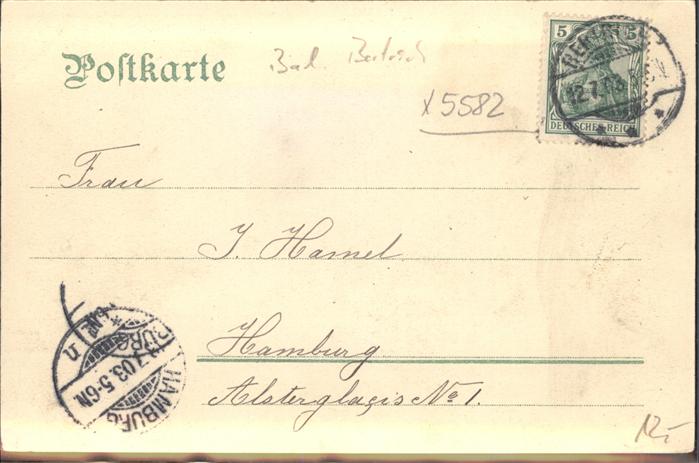 Postkarte
Bad.
x5582
5 5
DEUTSCHES REICH
BERLIN
12.7.03
Frau
J. Hamel
Hamburg
Alsterglaçis No 1.
HAMBURG
12.7.03. 5-6N.
12,-